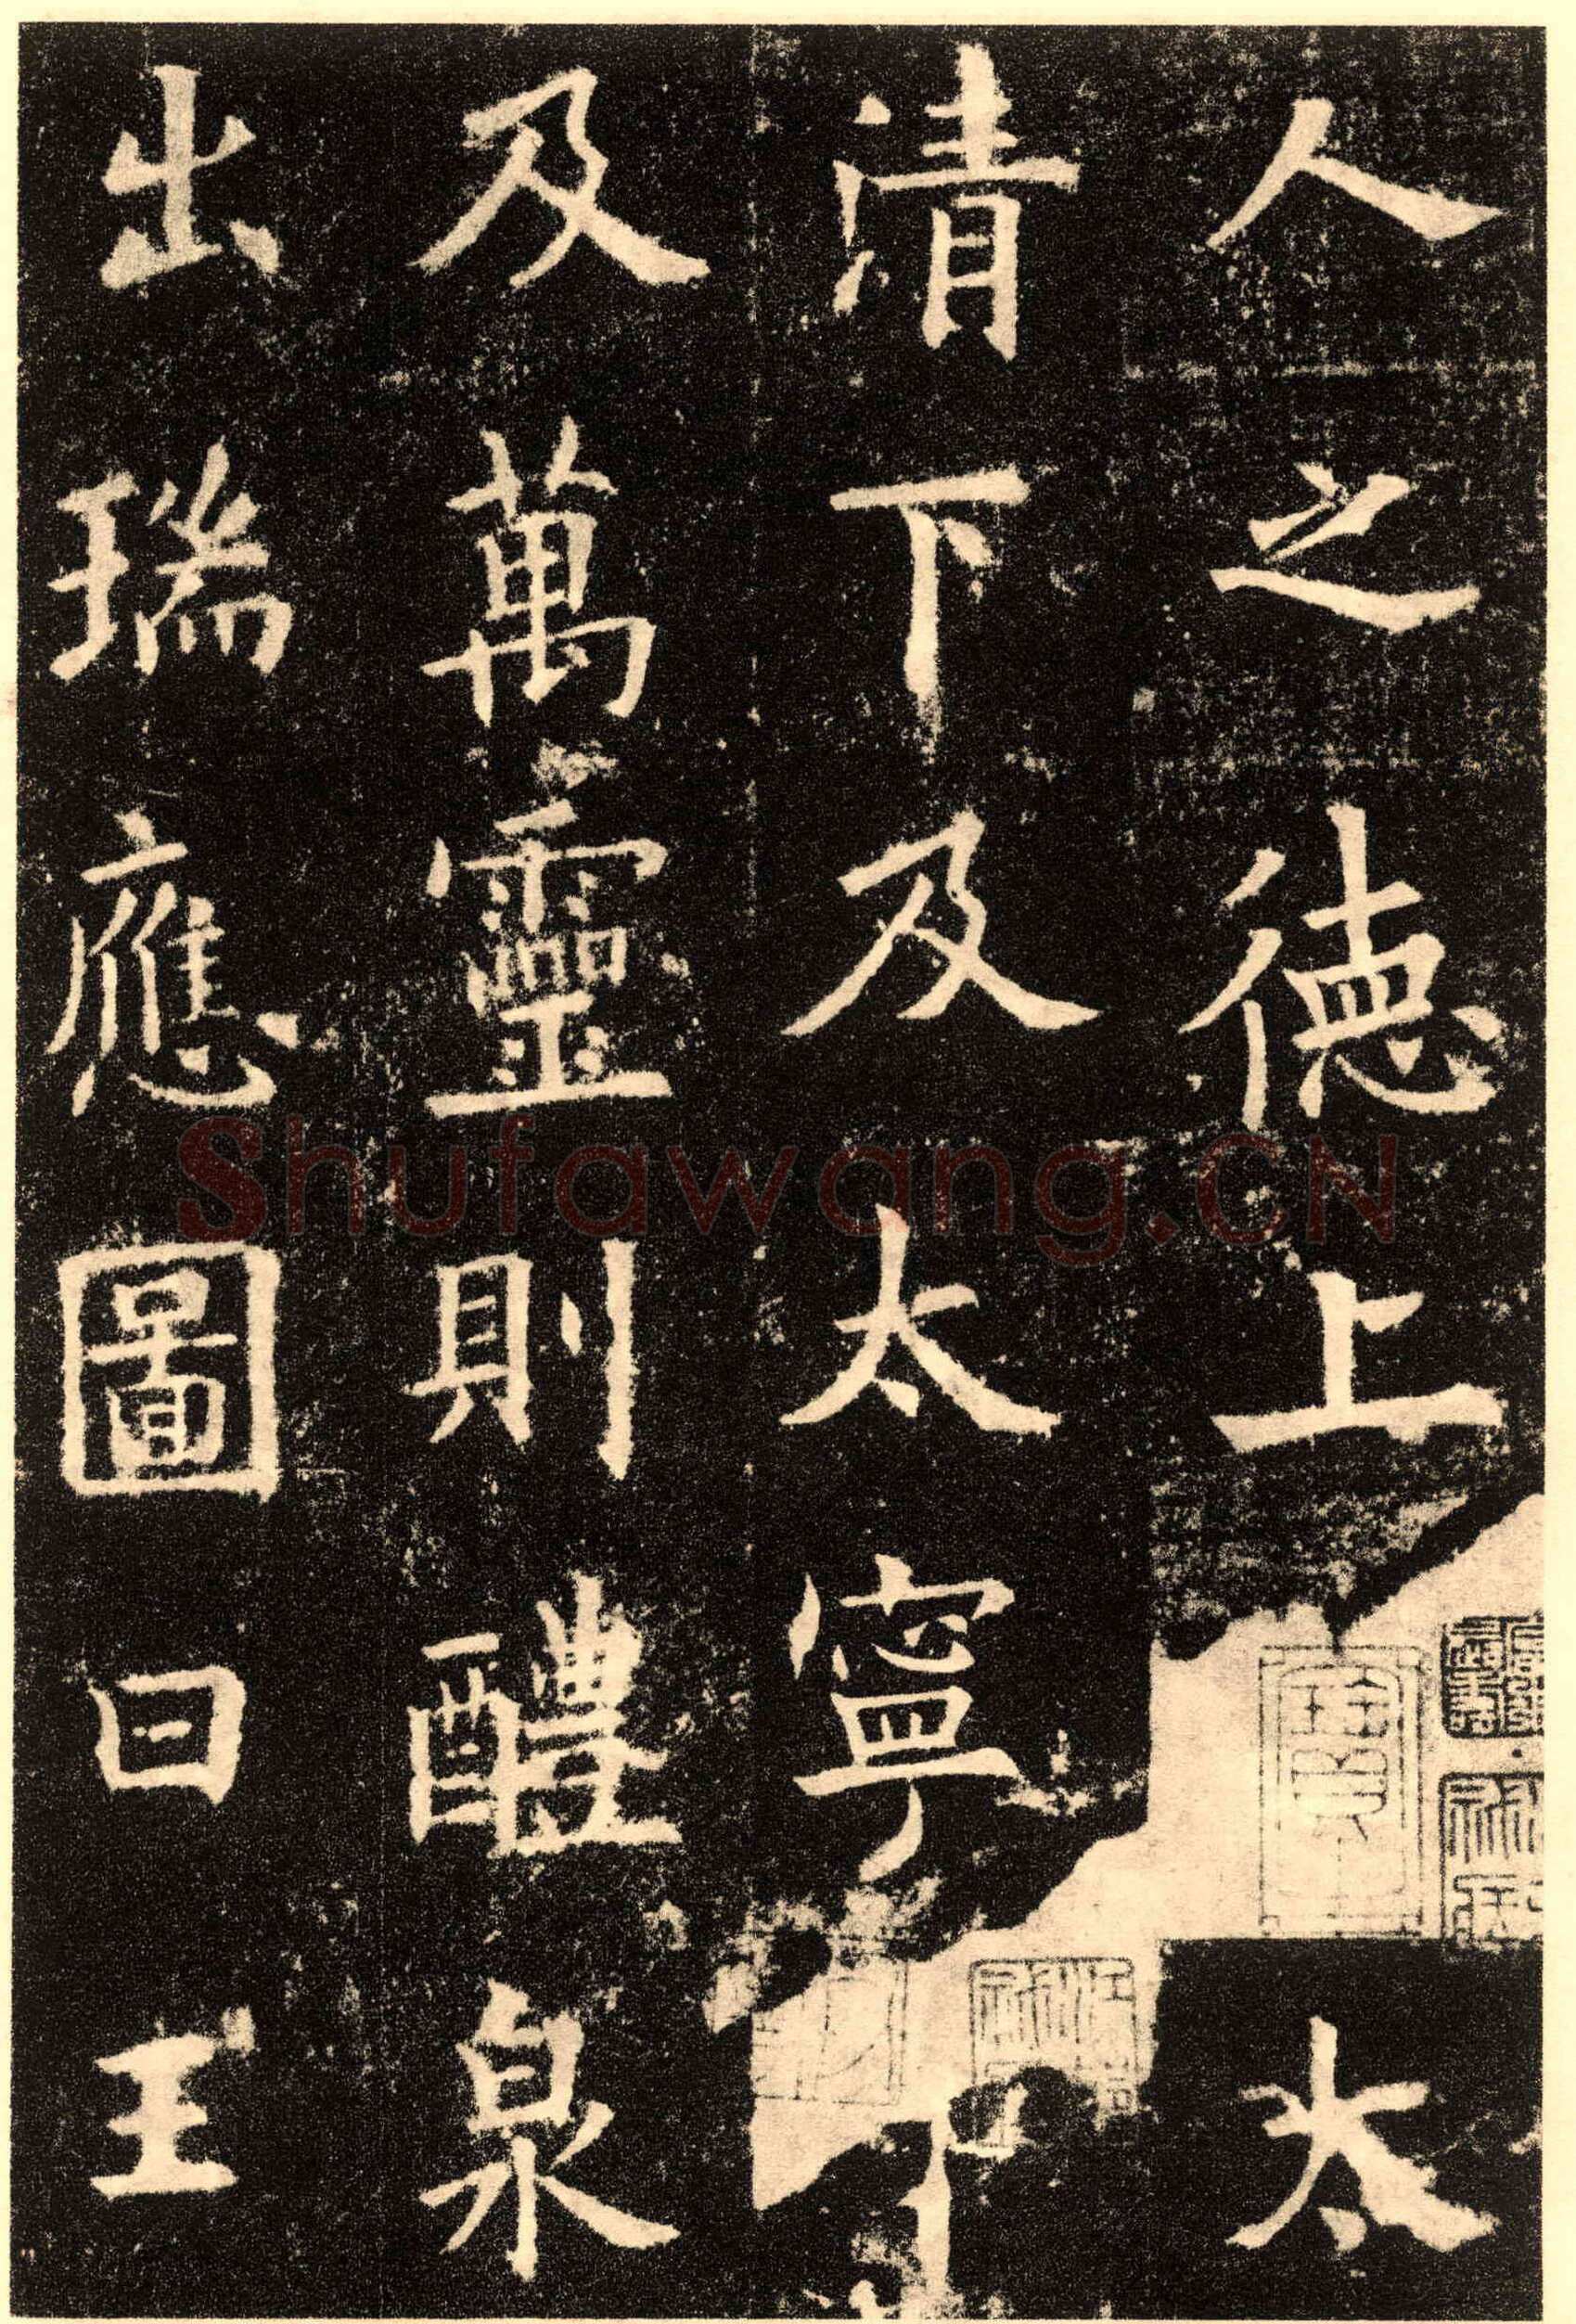 人之德上太
清下及太寧下
及萬靈則醴泉
出瑞應圖曰王
Shufawang.CN